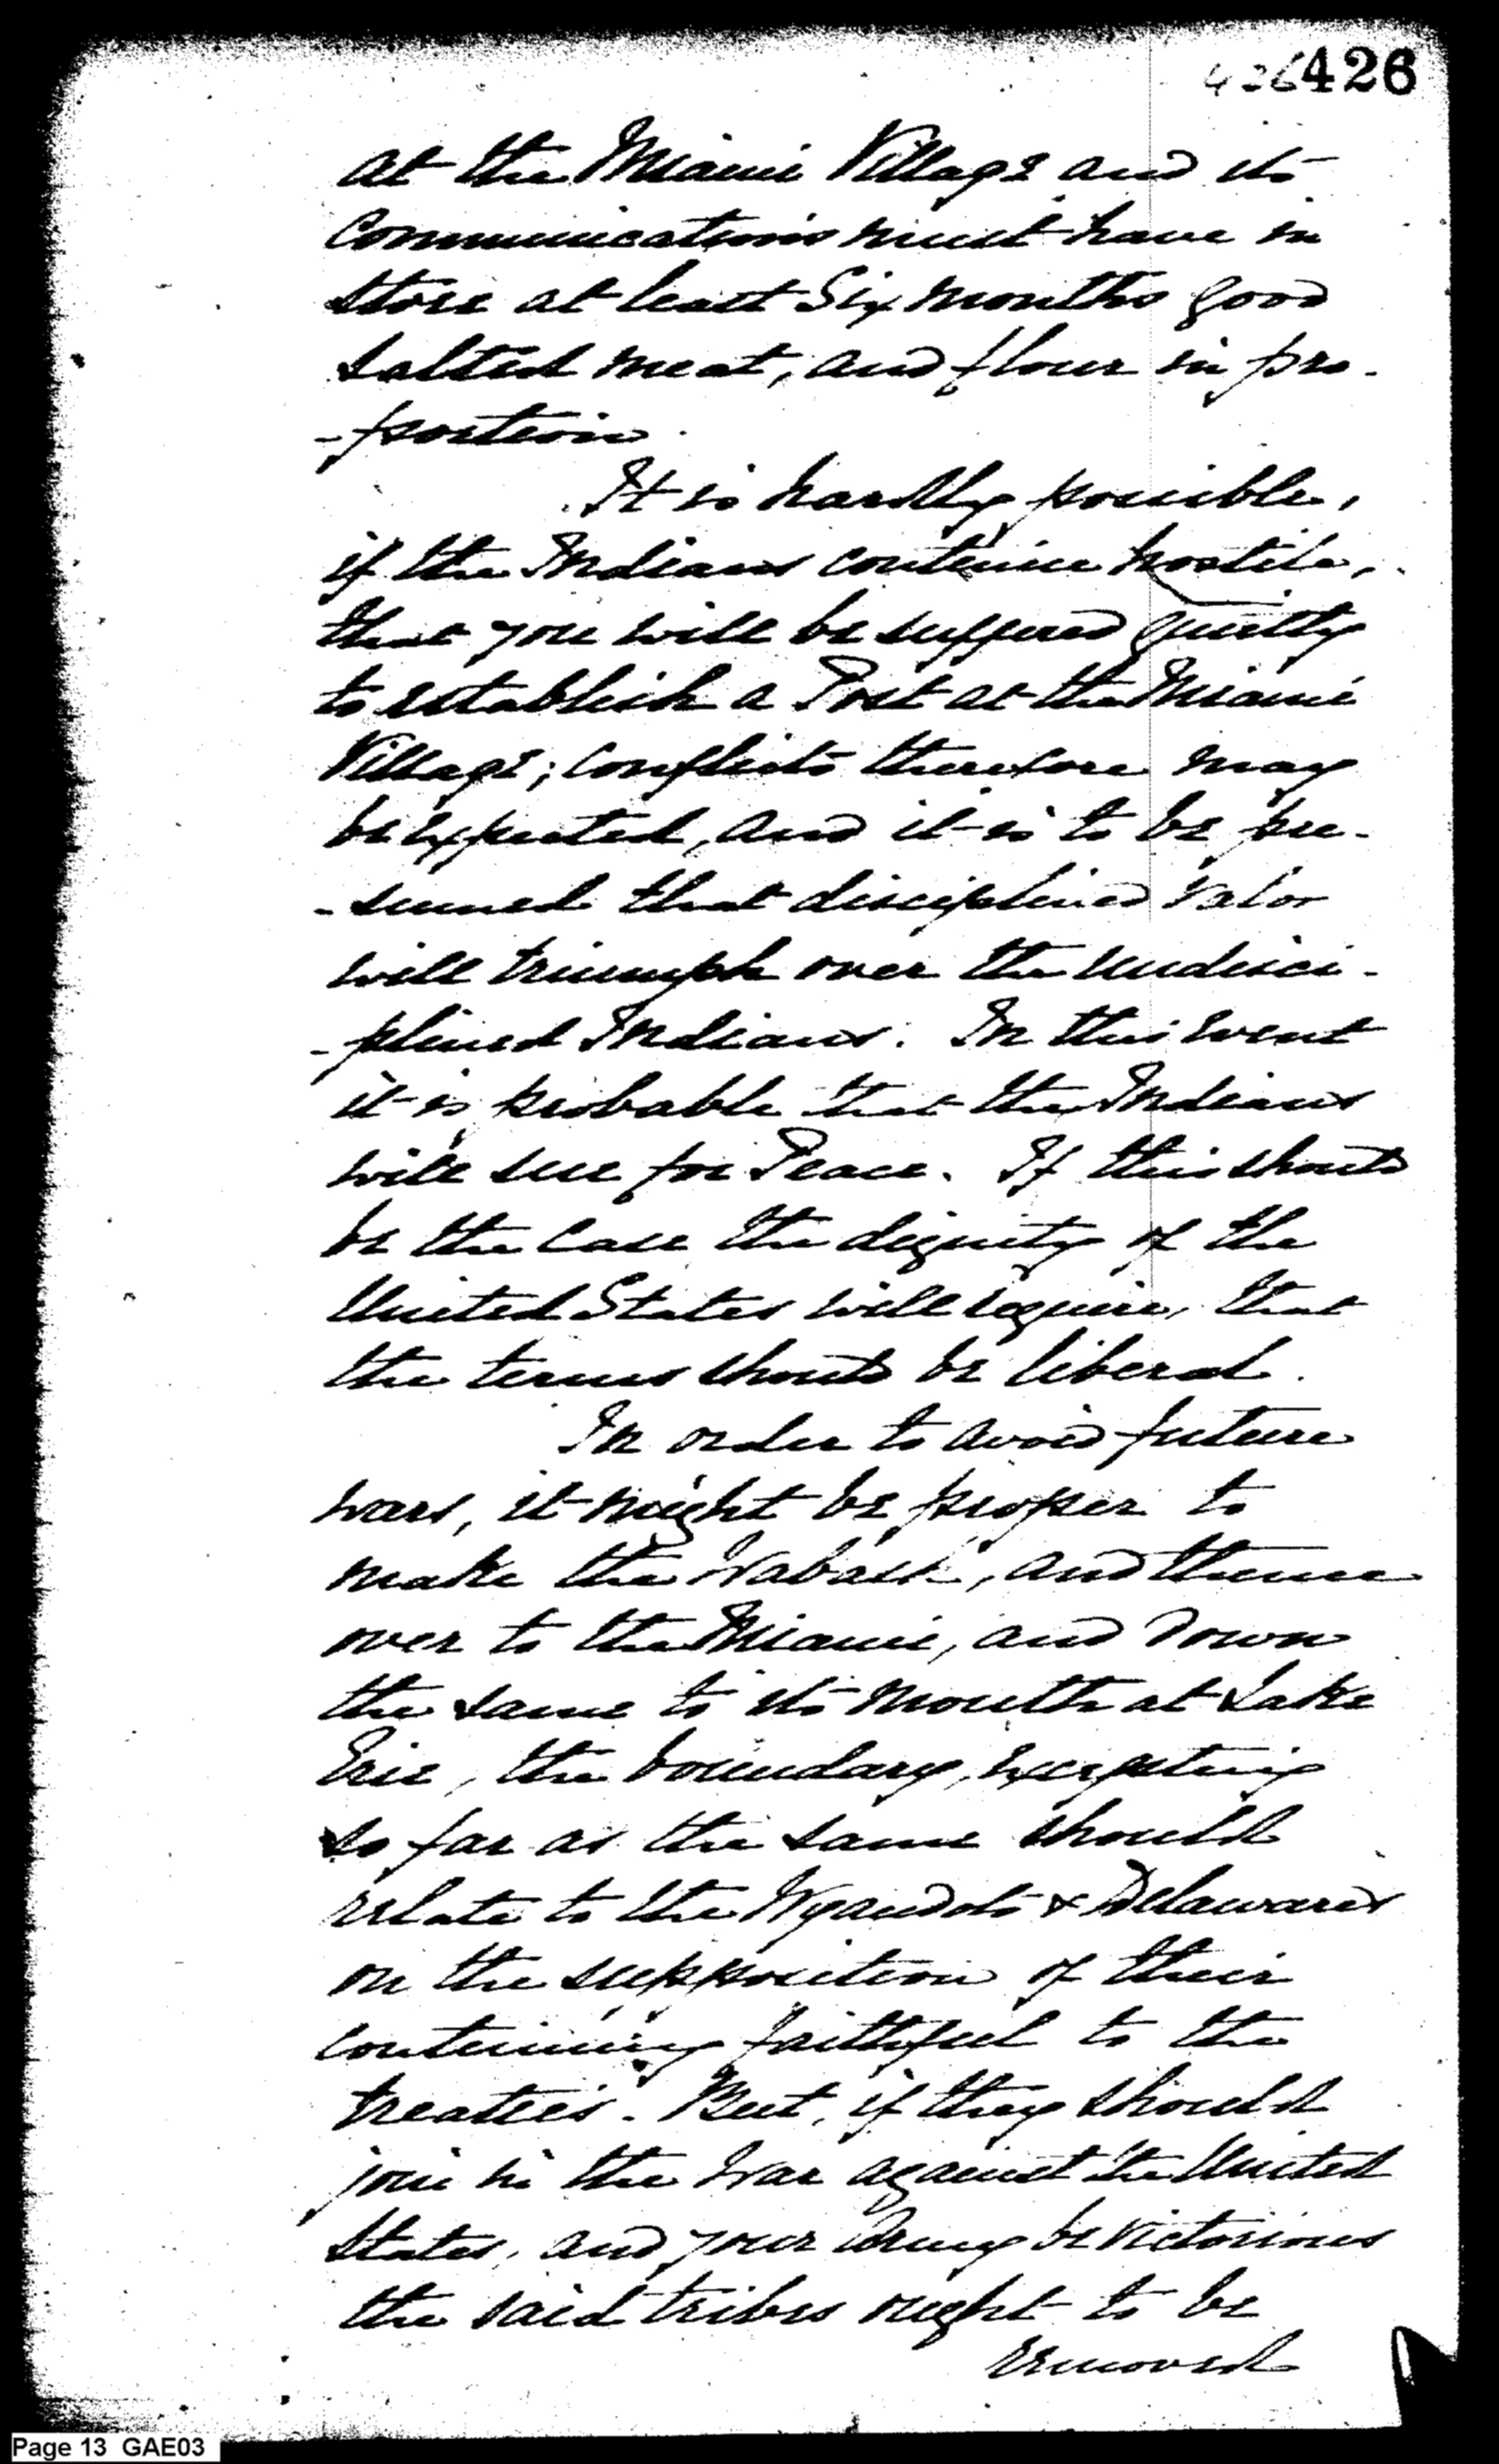 426 426
at the Miami Village and its
Communications must have in
store at least Six months good
salted meat, and flour in pro-
-portion.
It is hardly possible,
if the Indians continue hostile,
that you will be suffered quietly
to establish a Post at the Miami
Village; Conflicts therefore may
be expected, and it is to be pre-
-sumed that disciplined valor
will triumph over the undisci-
-plined Indians. In this event
it is probable that the Indians
will sue for Peace. If this should
be the Case the dignity of the
United States will require, that
the terms should be liberal.
In order to avoid future
wars, it might be proper to
make the Wabash, and thence
over to the Miami, and down
the same to its mouth at Lake
Erie, the boundary, excepting
so far as the same should
relate to the Wyandots & Delawares
on the supposition of their
continuing faithful to the
treaties. But, if they should
join in the War against the United
States, and your Army be victorious
the said tribes ought to be
removed
Page 13 GAE03